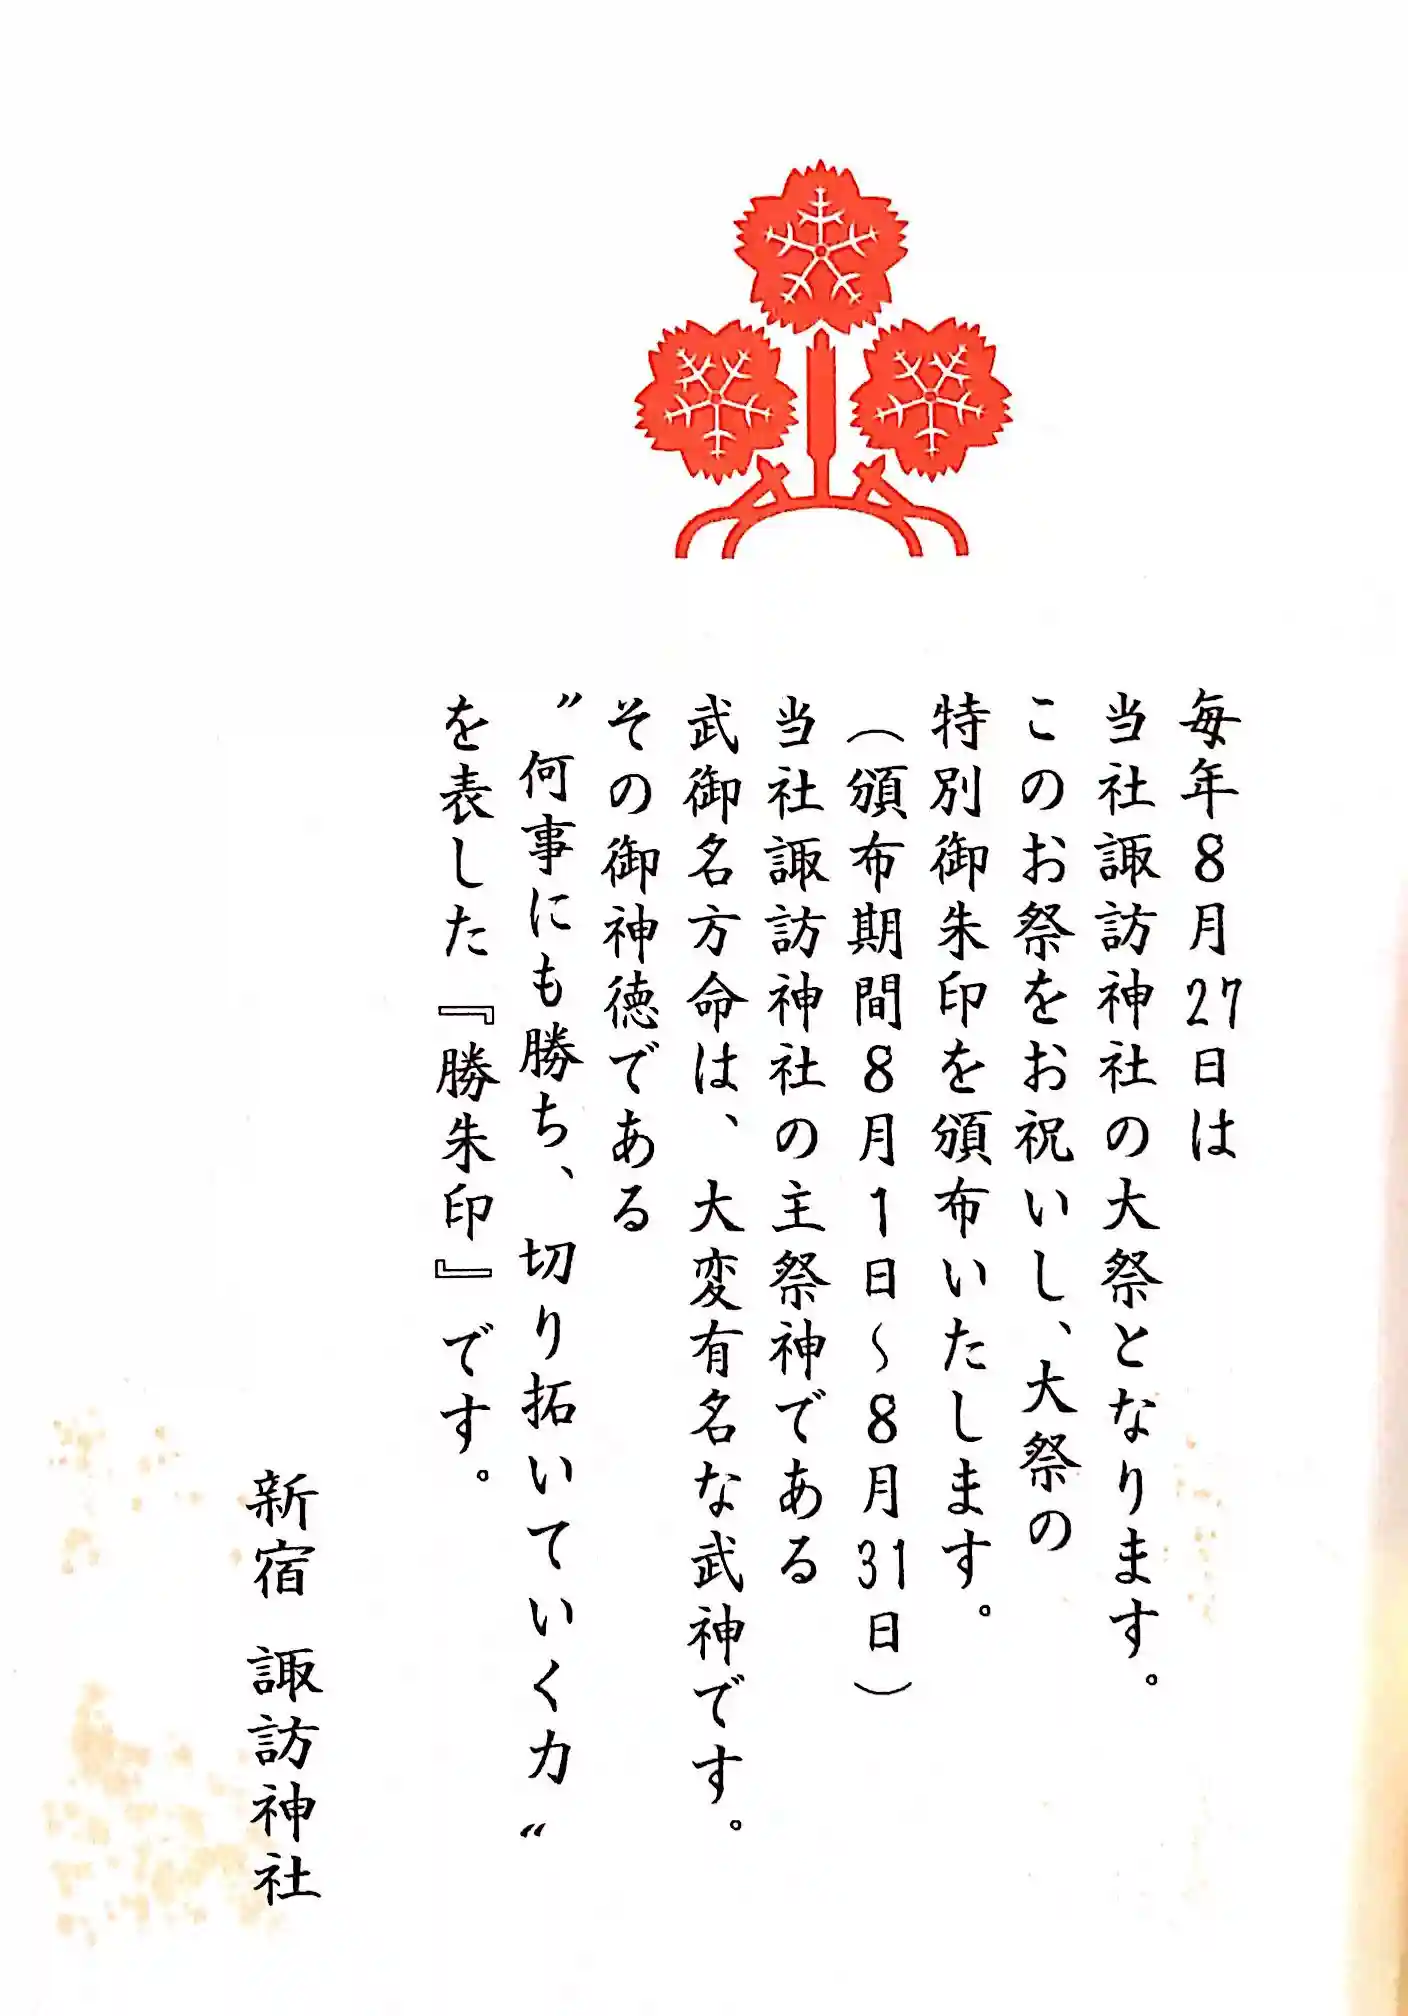 毎年8月27日は
当社諏訪神社の大祭となります。
このお祭をお祝いし、大祭の
特別御朱印を頒布いたします。
（頒布期間8月1日～8月31日）
当社諏訪神社の主祭神である
武御名方命は、大変有名な武神です。
その御神徳である
〝何事にも勝ち、切り拓いていく力〟
を表した『勝朱印』です。
新宿 諏訪神社